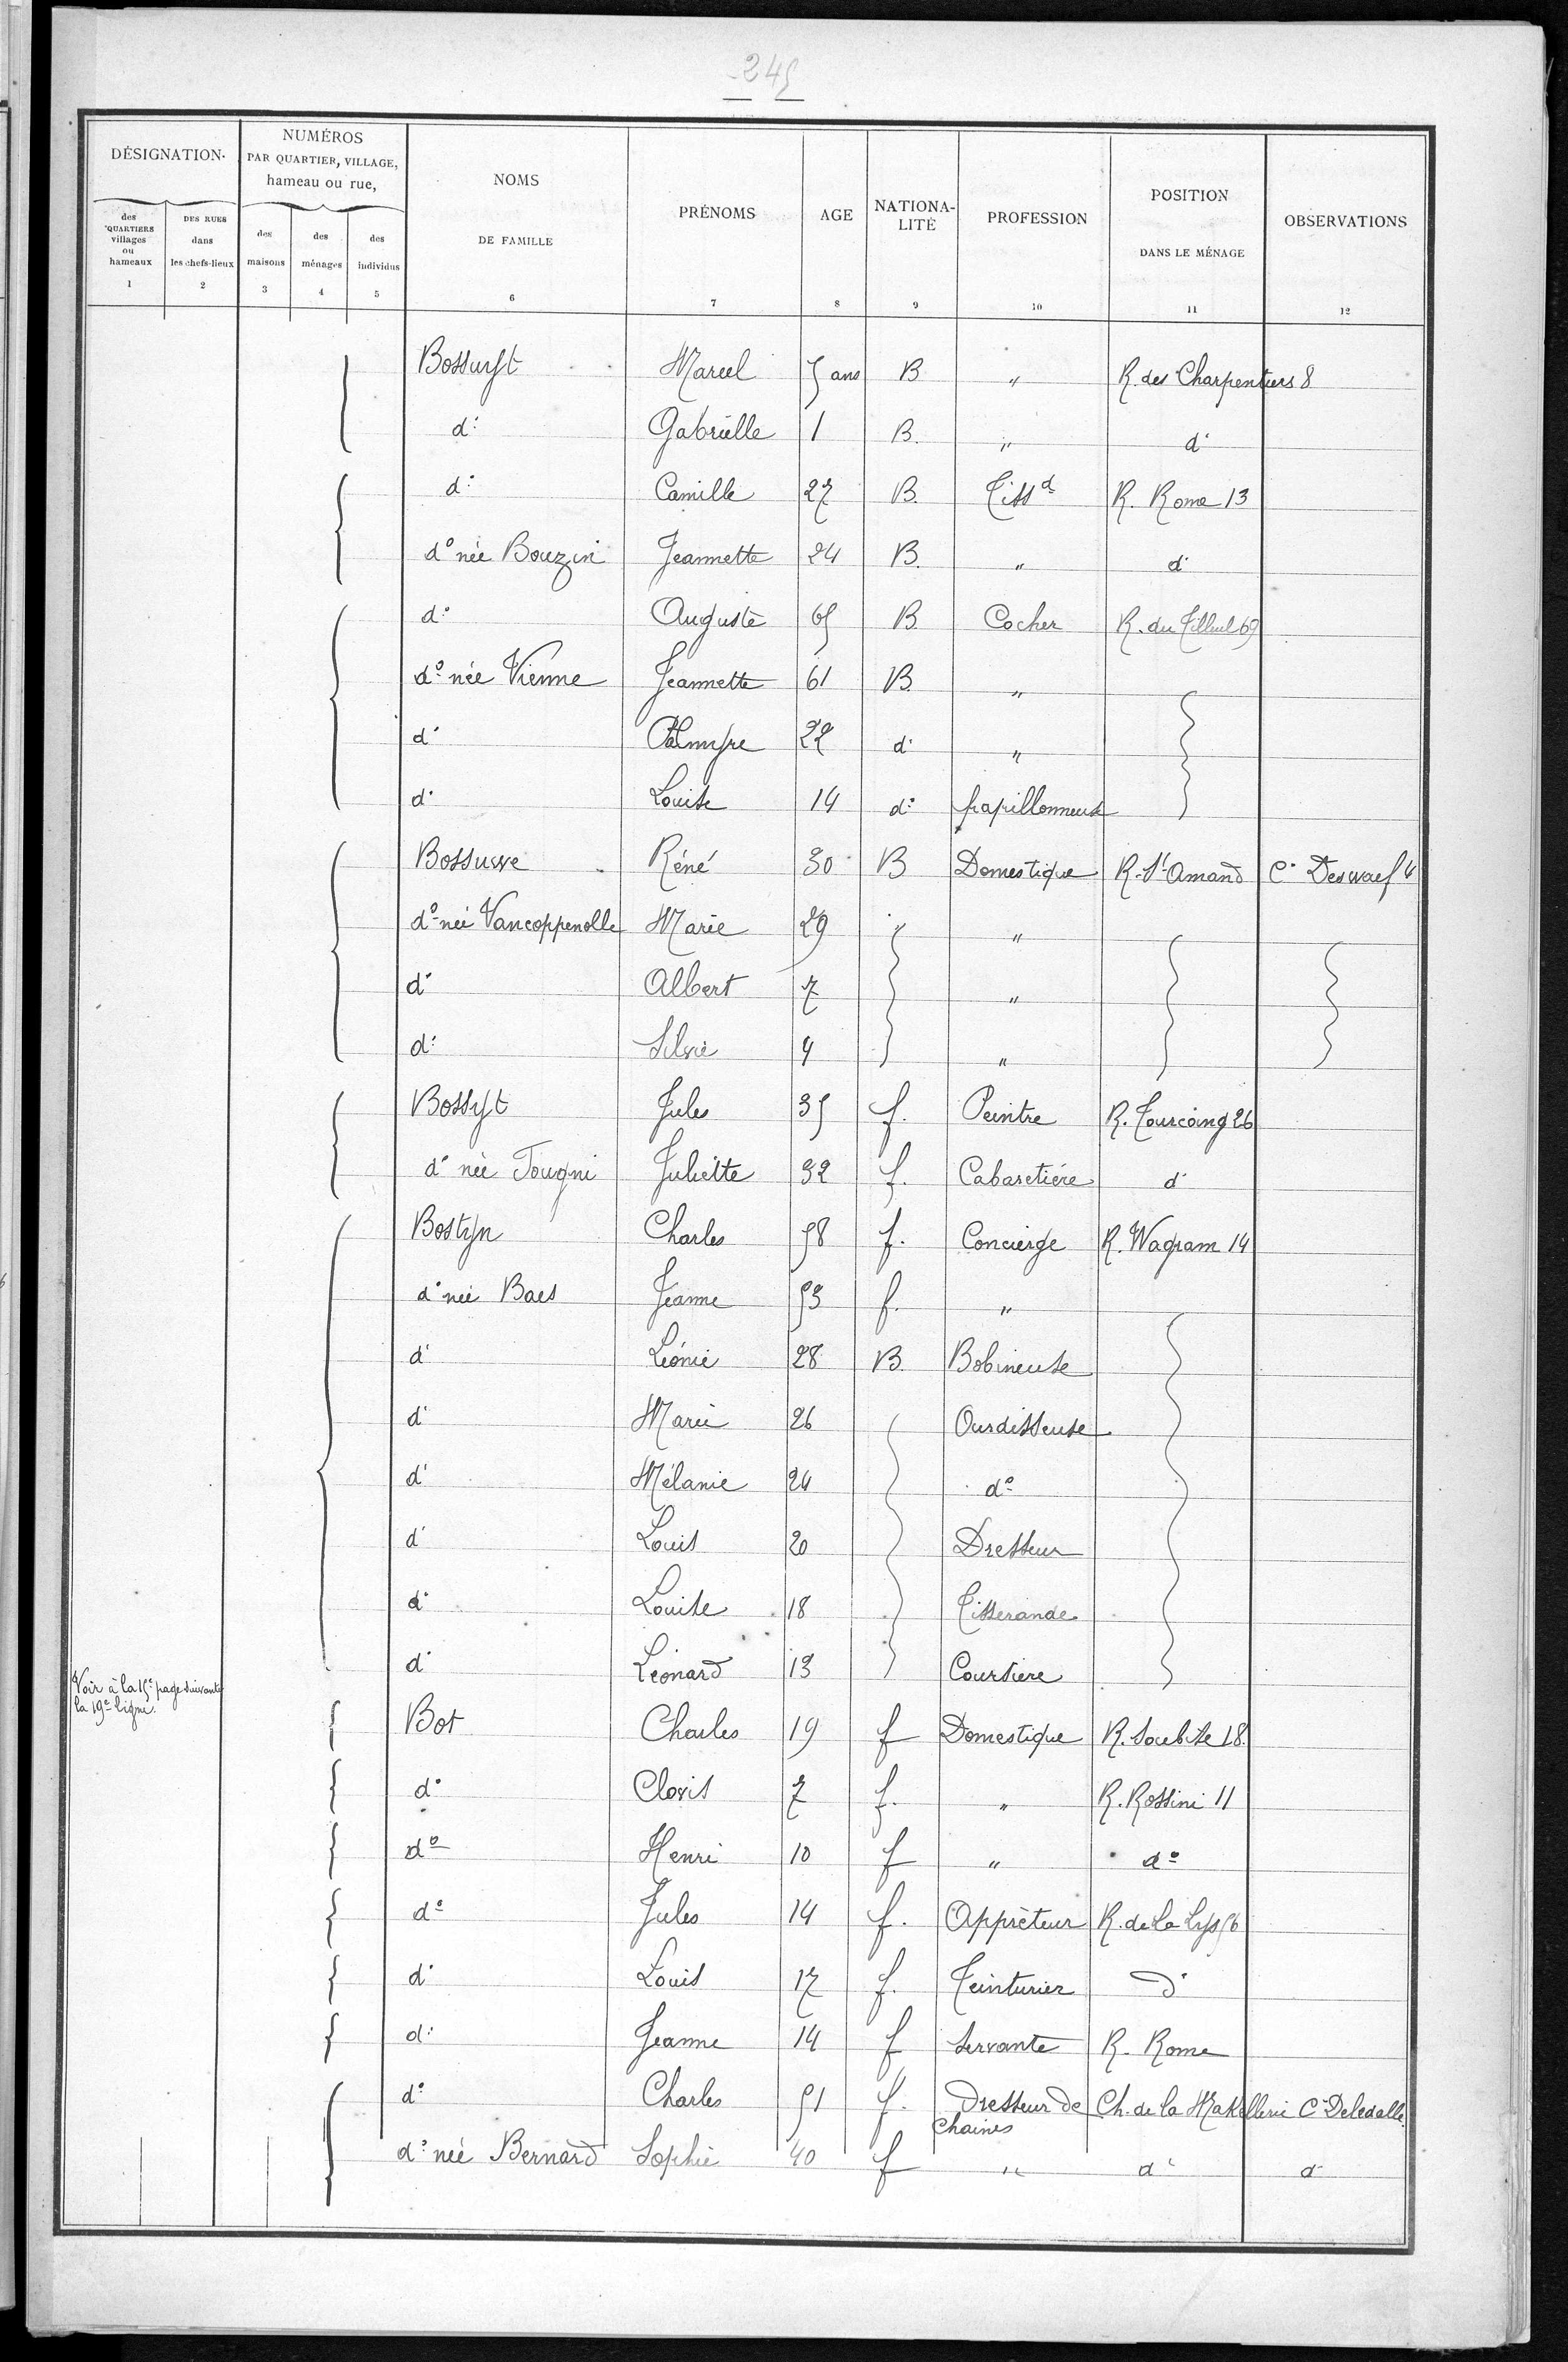 245
DÉSIGNATION.
NUMÉROS
PAR QUARTIER, VILLAGE,
hameau ou rue,
NOMS
DE FAMILLE
6
PRÉNOMS
7
AGE
8
NATIONA-
LITÉ
9
PROFESSION
10
POSITION
DANS LE MÉNAGE
11
OBSERVATIONS
12
des
QUARTIERS
villages
ou
hameaux
1
DES RUES
dans
les chefs-lieux
2
des
maisons
3
des
ménages
4
des
individus
5
Bossuyt Marcel 5 ans B " R. des Charpentiers 8
d° Gabrielle 1 B. " d°
d° Camille 27 B. Tissd R. Rome 13
d° née Bouzin Jeannette 24 B. " d°
d° Auguste 65 B. Cocher R. du Tilleul 69
d° née Vienne Jeannette 61 B. "
d° Palmyre 22 d° "
d° Louise 14 d° papillonneuse
Bossuwe Réné 30 B Domestique R. St Amand C. Deswaef 4
d° née Vancoppenolle Marie 29 " "
d° Albert 7 "
d° Silvie 4 "
Bossyt Jules 35 f. Peintre R. Tourcoing 26
d° née Tougni Juliette 32 f. Cabaretière d°
Bostyn Charles 58 f. Concierge R. Wagram 14
d° née Baes Jeanne 53 f. "
d° Léonie 28 B. Bobineuse
d° Marie 26 Ourdisseuse
d° Mélanie 24 d°
d° Louis 20 Dresseur
d° Louise 18 Tisserande
d° Léonard 13 Coursiere
Voir à la 15e page suivante
la 19e ligne.
Bot Charles 19 f Domestique R. Soubise 18.
d° Clovis 7 f. " R. Rossini 11
d° Henri 10 f " d°
d° Jules 14 f. Apprêteur R. de la Lys 56
d° Louis 17 f. Teinturier d°
d° Jeanne 14 f Servante R. Rome
d° Charles 51 f. Dresseur de Ch. de la Makellerie C. Deledalle
chaines
d° née Bernard Sophie 40 f " d° d°